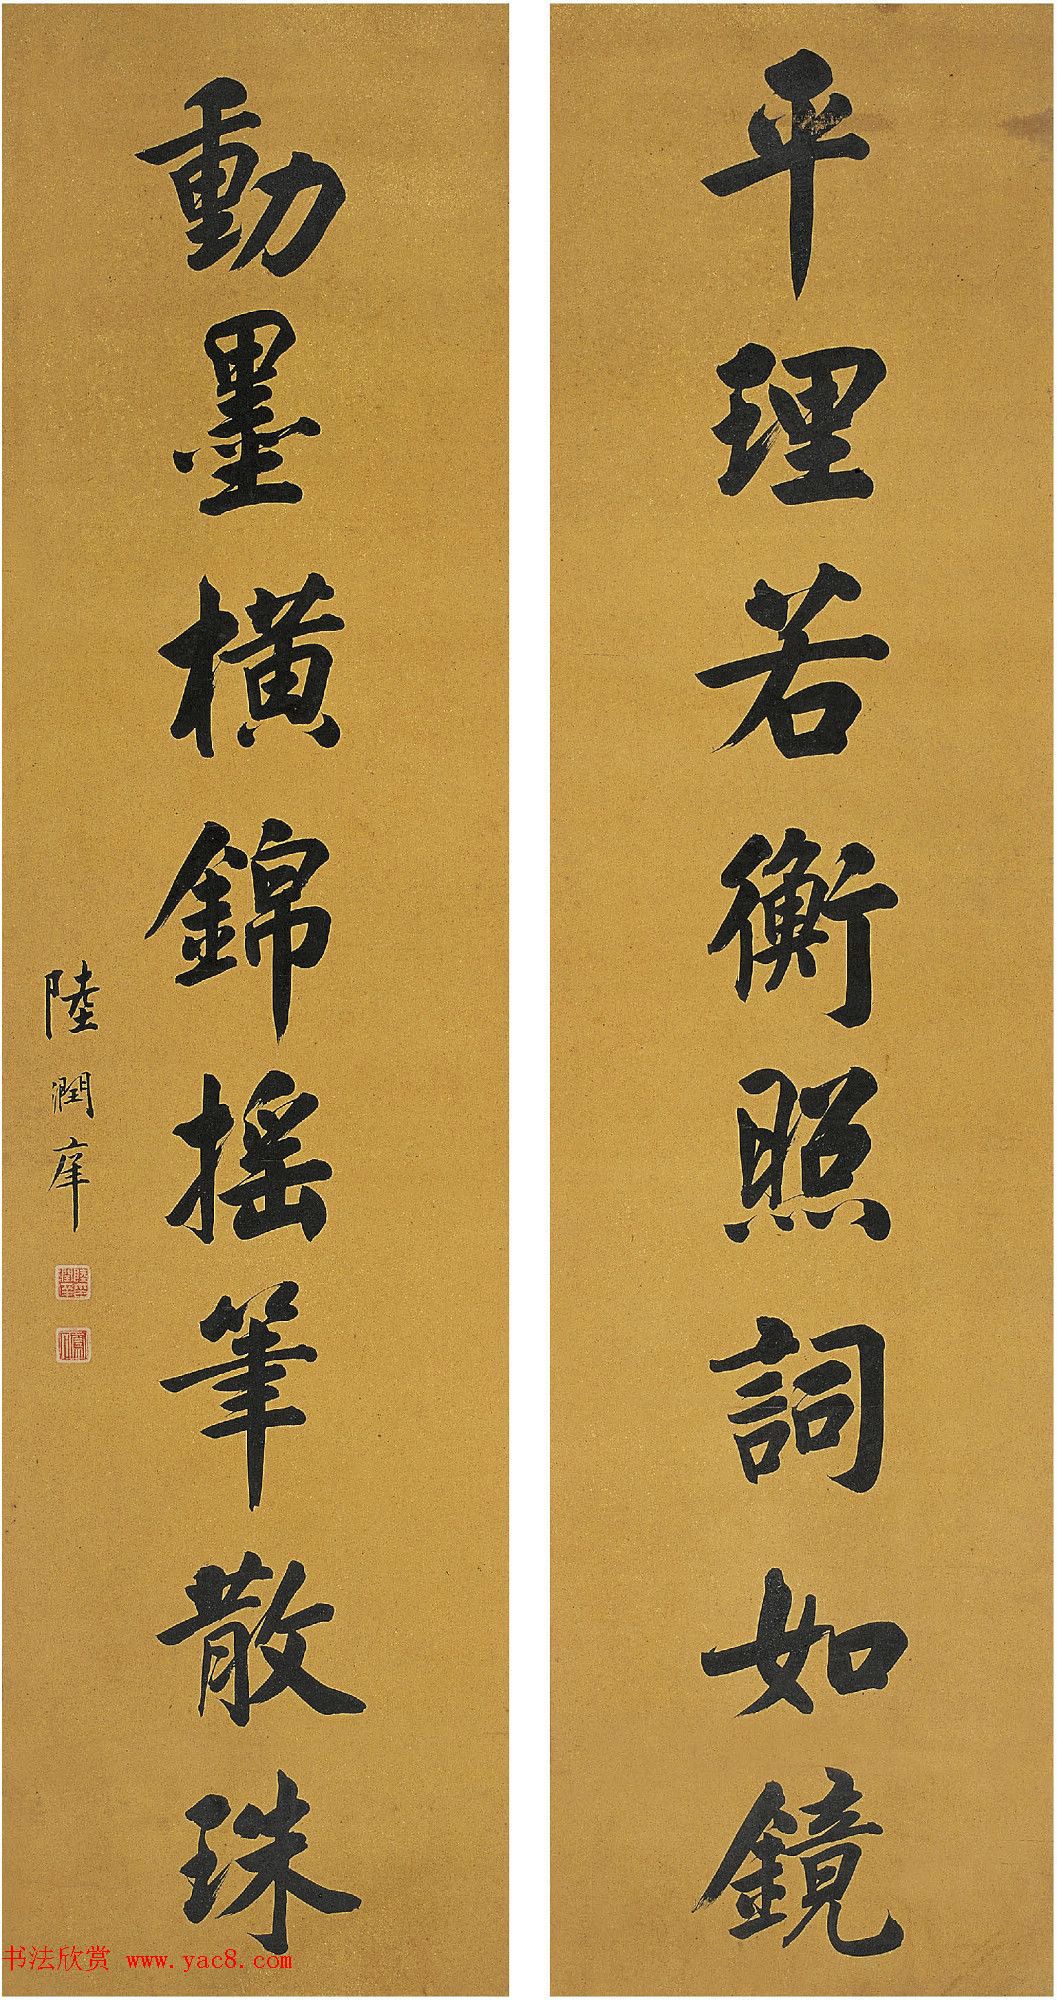 平理若衡照詞如鏡
動墨橫錦摇筆散珠
陸潤庠
书法欣赏 www.yac8.com